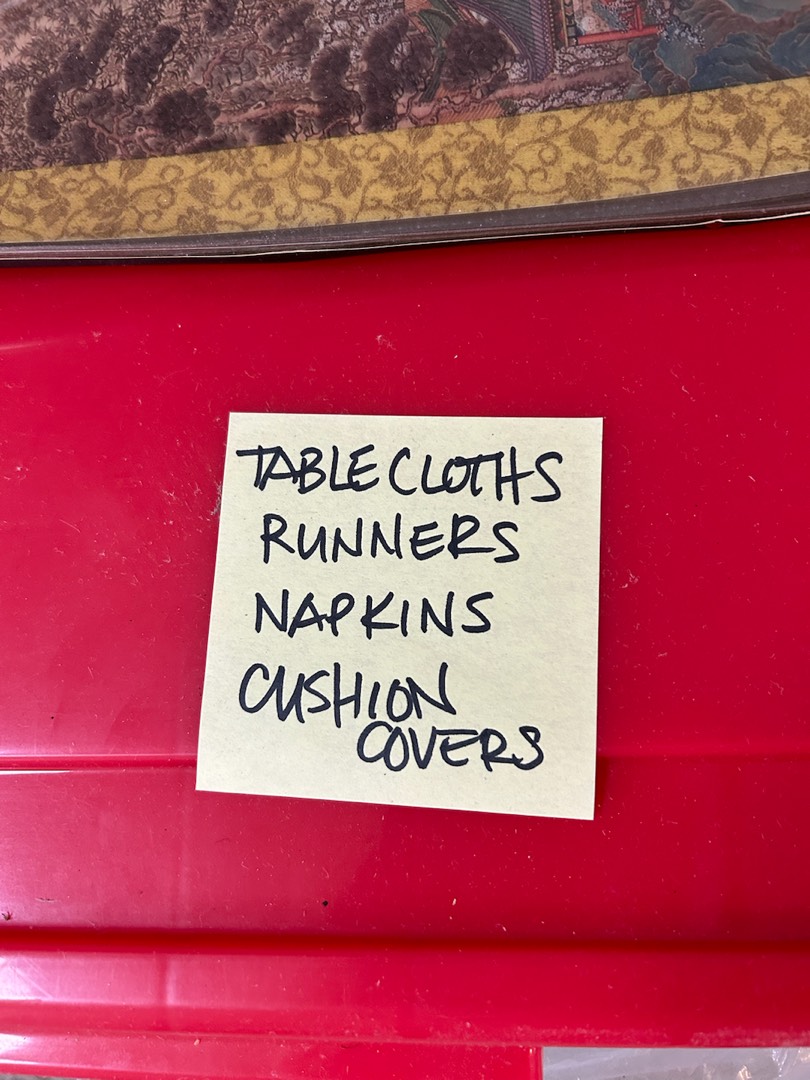 TABLECLOTHS
RUNNERS
NAPKINS
CUSHION
COVERS